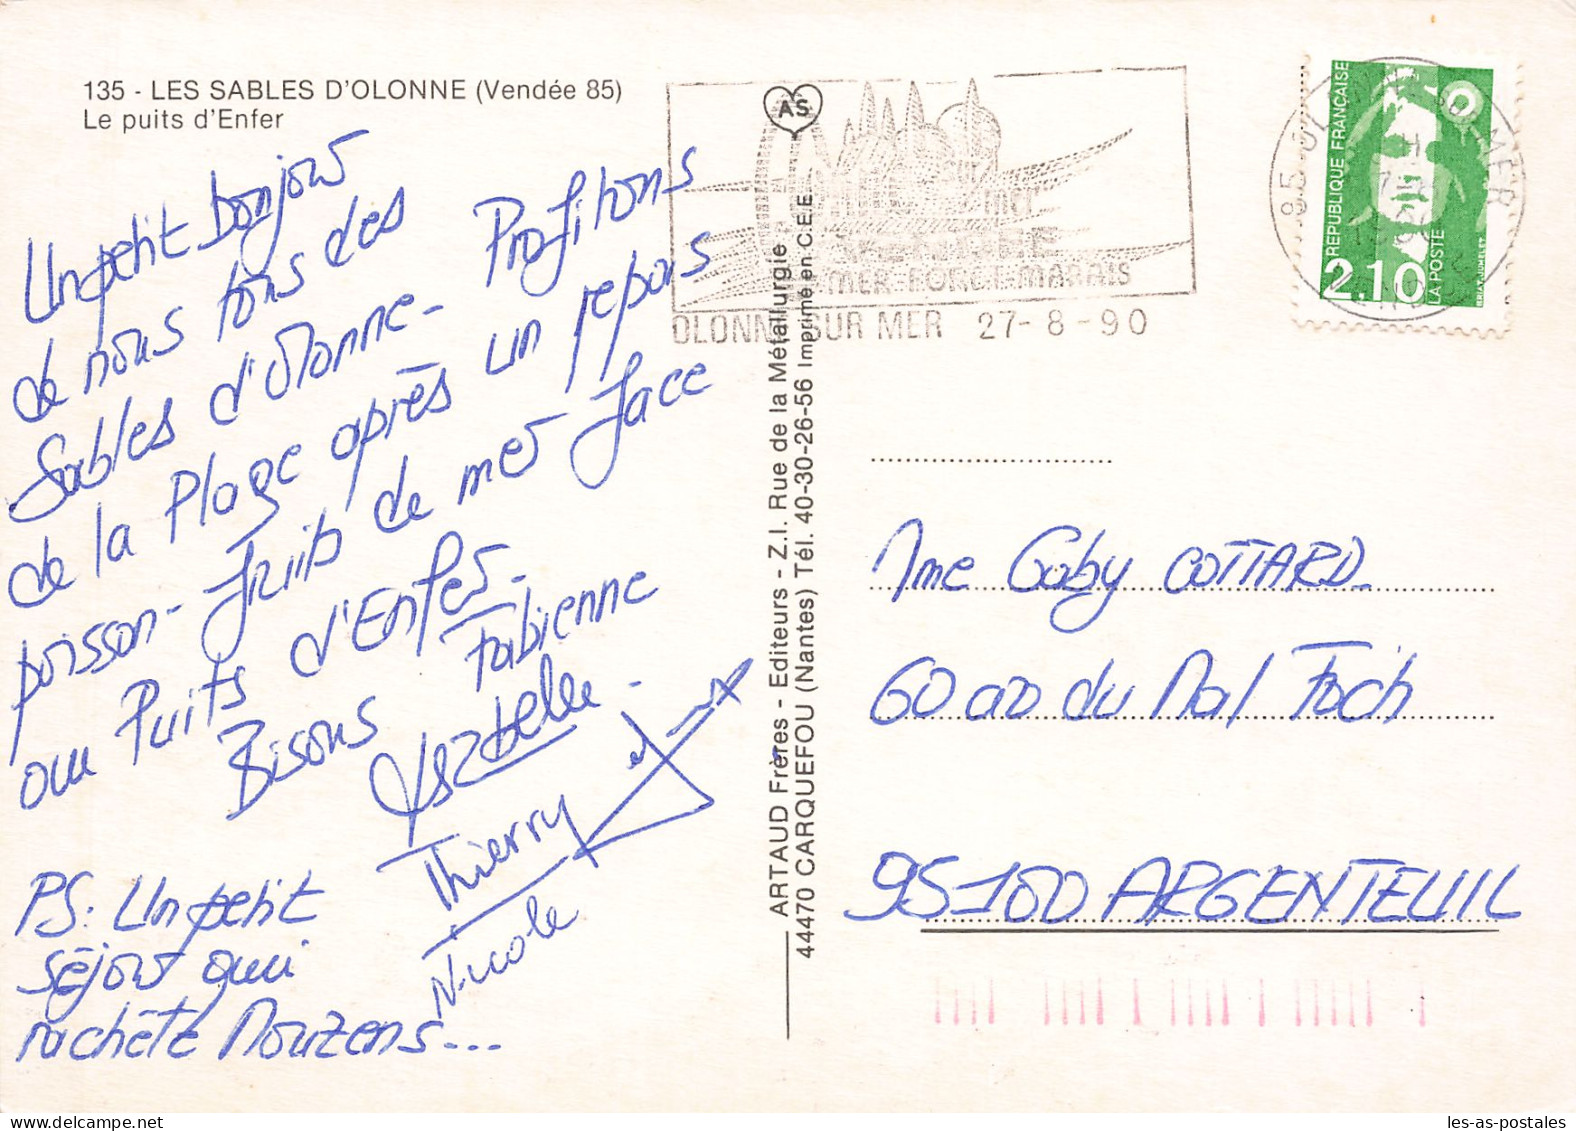 135 - LES SABLES D'OLONNE (Vendée 85)
Le puits d'Enfer
Un petit bonjour
de nous tous des
Sables d'Olonne. Profitons
de la Plage après un repas
poisson - fruits de mer face
au Puits d'Enfer.
Bisous Fabienne
Isabelle
Thierry
Nicole
PS: Un petit
séjour qui
rachète Mouzens...
AS
ARTAUD Frères - Editeurs - Z.I. Rue de la Métallurgie
44470 CARQUEFOU (Nantes) Tél. 40-30-26-56 Imprimé en C.E.E.
sur
mer
MER-FORET-MARAIS
OLONNE SUR MER 27-8-90
RÉPUBLIQUE FRANÇAISE
2,10
LA POSTE
Mme Gaby COTTARD
60 av du Mal Foch
95100 ARGENTEUIL
les-as-postales.com